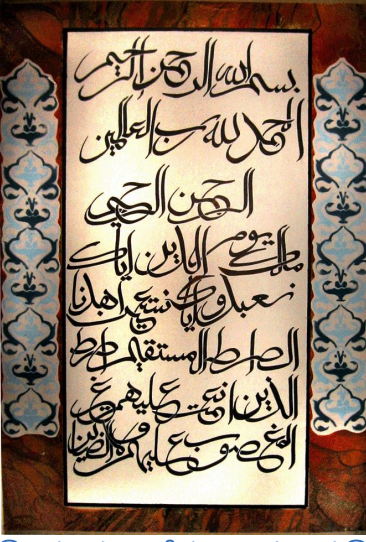 بسم الله الرحمن الرحيم
الحمد لله رب العالمين
الرحمن الرحيم
ملك يوم الدين اياك
نعبد و اياك نستعين اهدنا
الصراط المستقيم صراط
الذين انعمت عليهم غير
المغضوب عليهم ولا الضالين